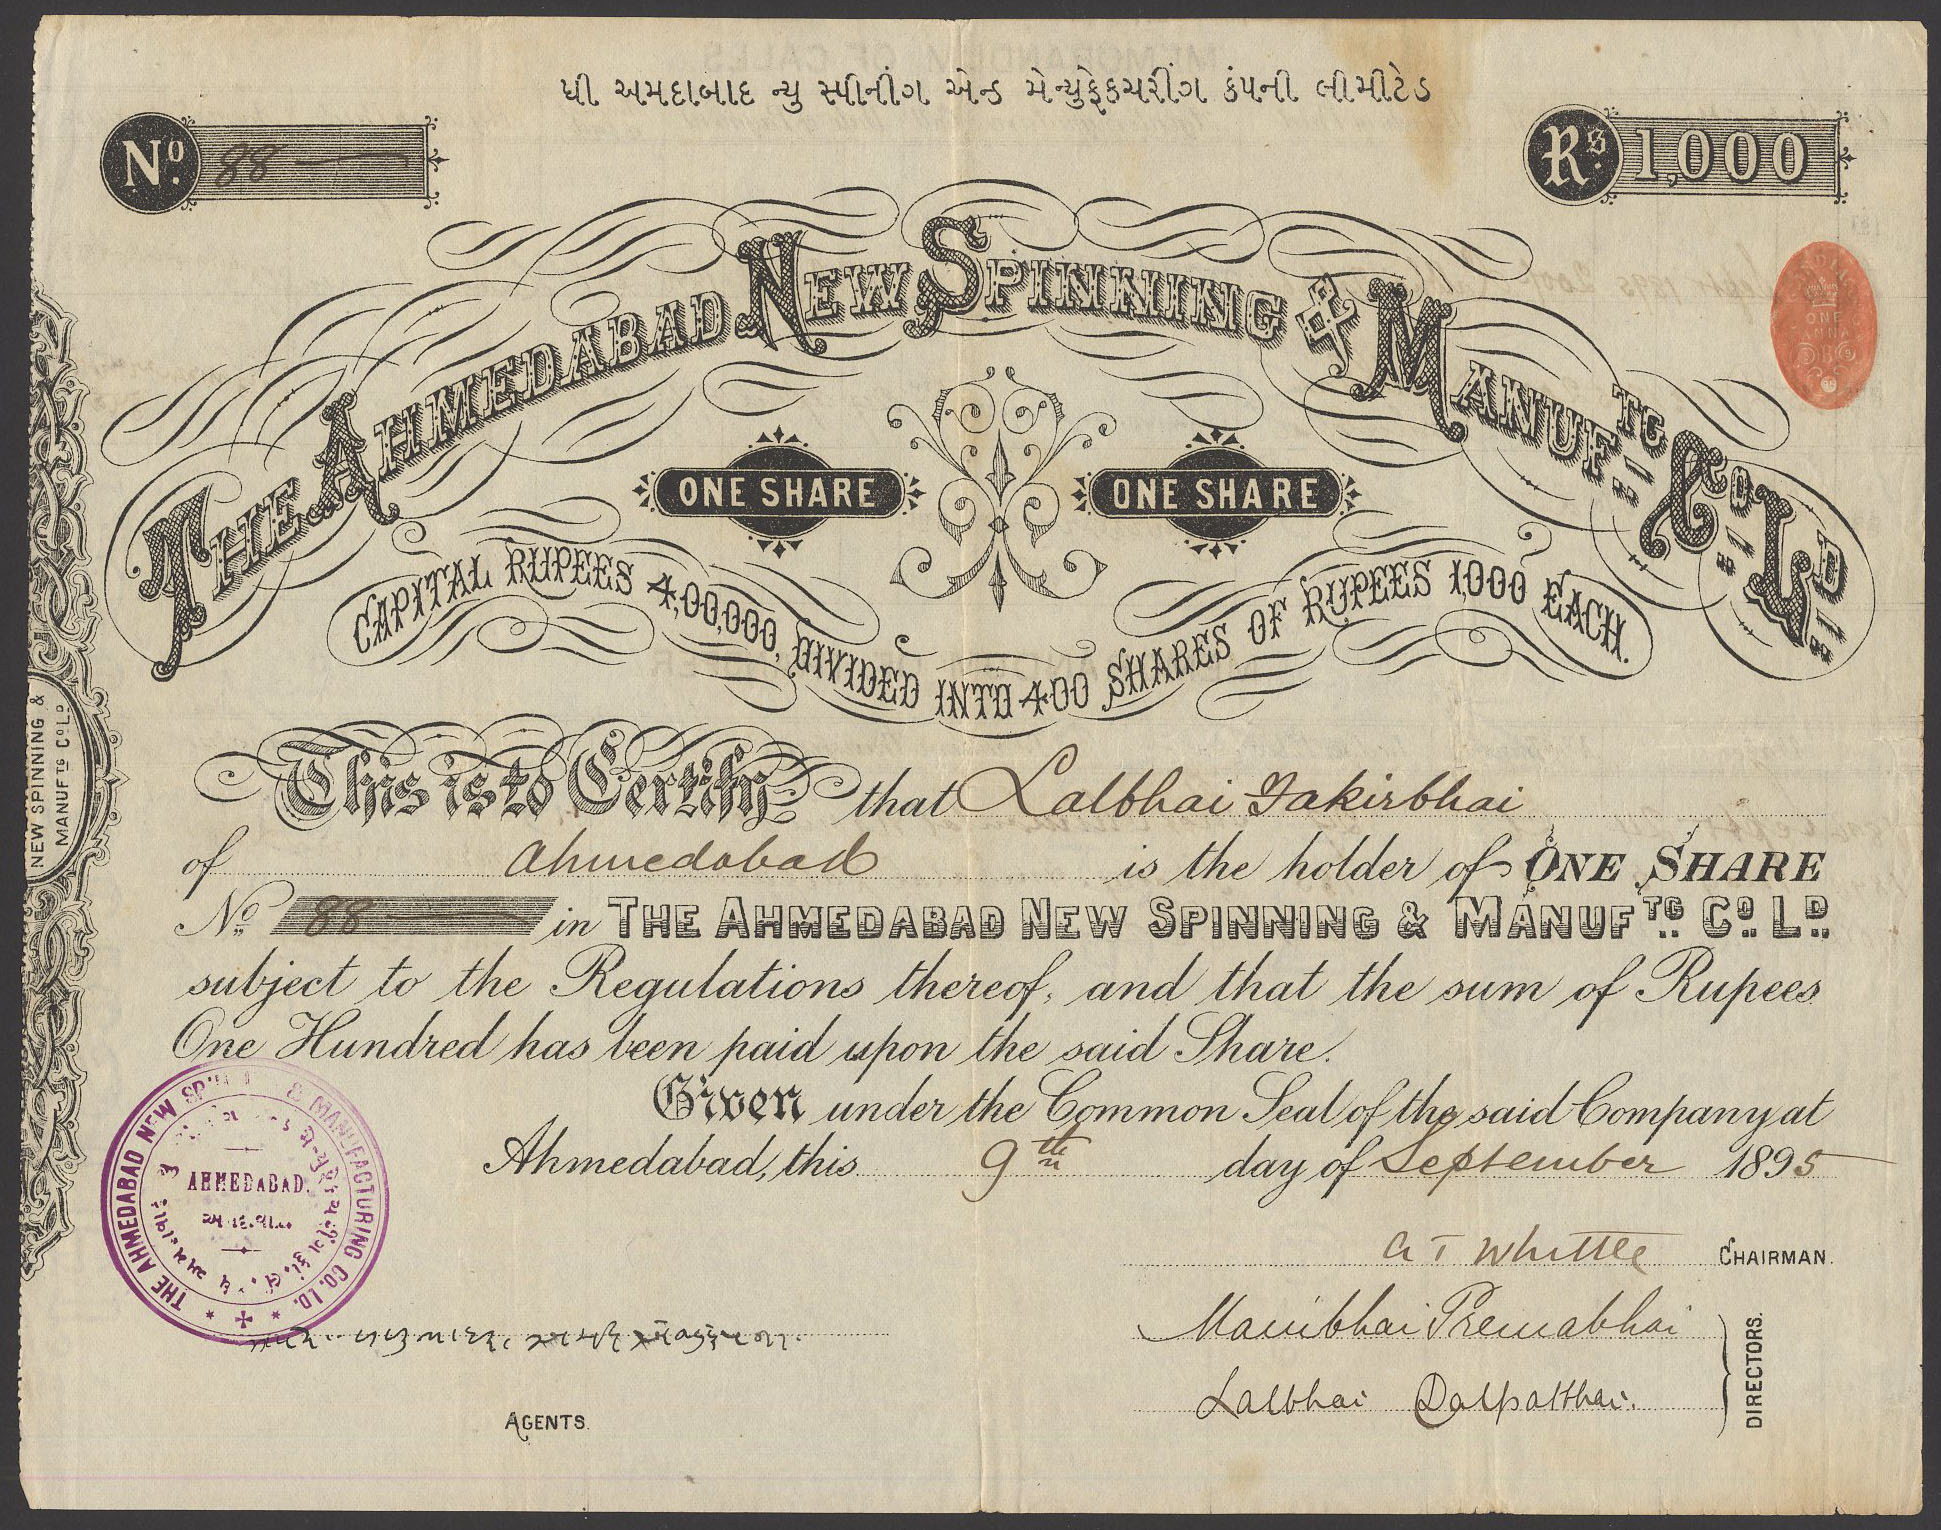 ધી અમદાબાદ ન્યુ સ્પીનીંગ એન્ડ મેન્યુફેકચરીંગ કંપની લીમીટેડ
No. 88
Rs. 1,000
THE AHMEDABAD NEW SPINNING & MANUFTG. CO. LD.
ONE ANNA
ONE SHARE
ONE SHARE
CAPITAL RUPEES 4,00,000, DIVIDED INTO 400 SHARES OF RUPEES 1,000 EACH.
NEW SPINNING &
MANUFTG CO. LD.
This is to Certify that Lalbhai Fakirbhai
of Ahmedabad is the holder of ONE SHARE
No. 88 in THE AHMEDABAD NEW SPINNING & MANUFTG. CO. LD.
subject to the Regulations thereof, and that the sum of Rupees
One Hundred has been paid upon the said Share.
Given under the Common Seal of the said Company at
Ahmedabad, this 9th day of September 1895
THE AHMEDABAD NEW SPINNING & MANUFACTURING CO. LD.
AHMEDABAD.
Whittle CHAIRMAN.
Manibhai Premabhai
Lalbhai Dalpatbhai.
DIRECTORS.
AGENTS.